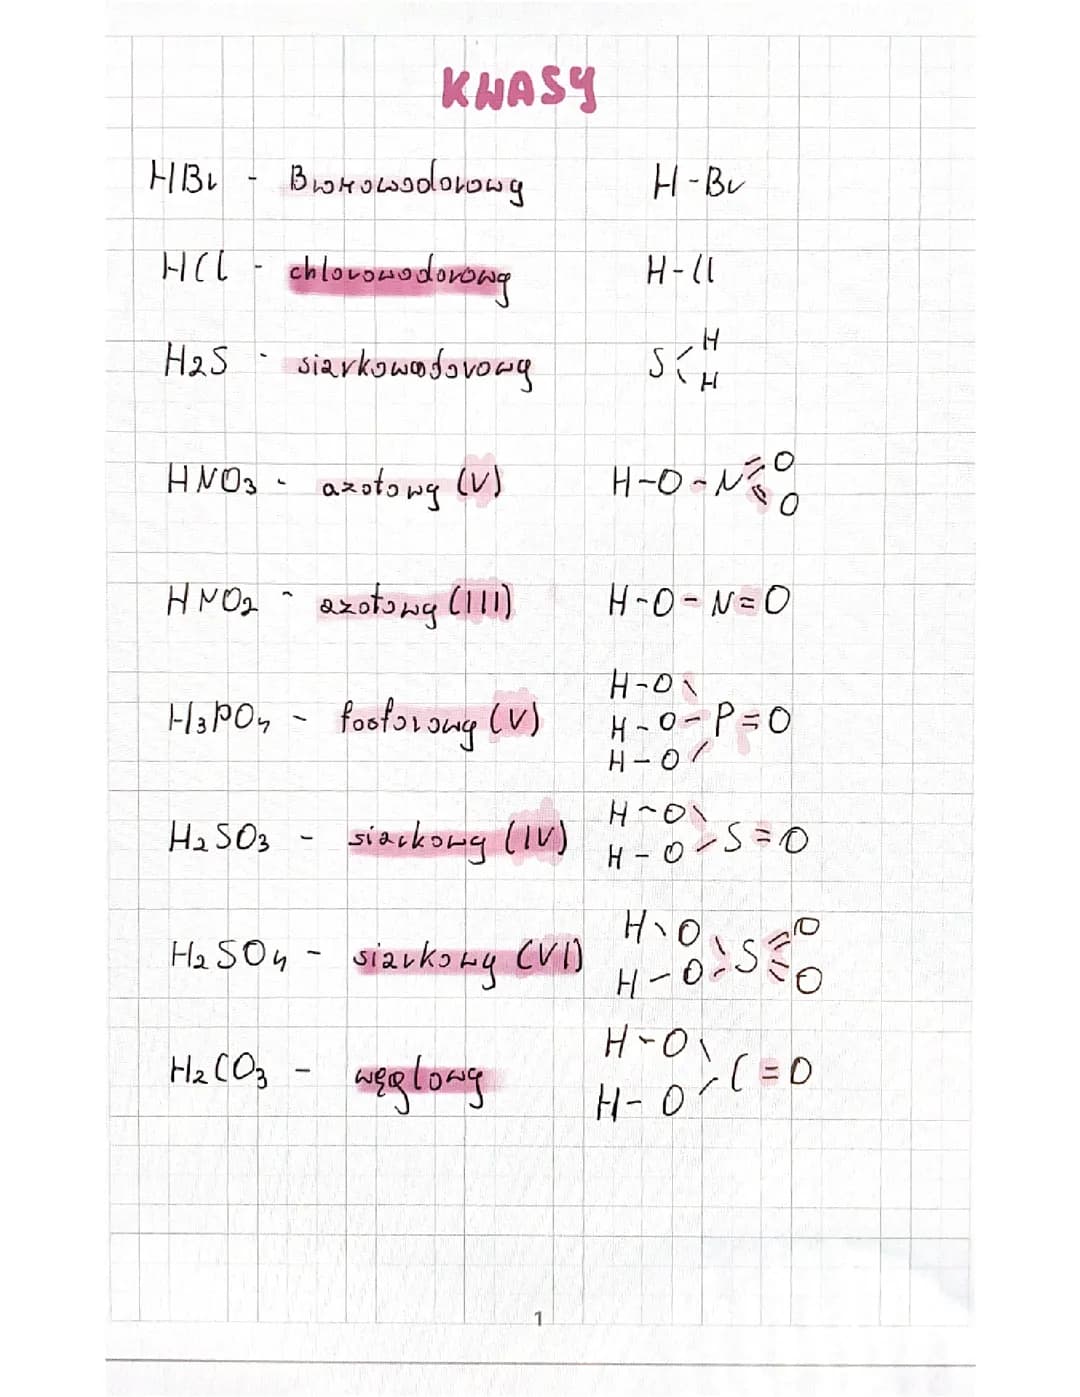 KWASY
HBr - Bromowodorowy H-Br
HCl - chlorowodorowy H-Cl
H2S - siarkowodorowy S H H
HNO3 - azotowy (V) H-O-N=O =O
HNO2 - azotowy (III) H-O-N=O
H-O\
H3PO4 - fosforowy (V) H-O-P=O
H-O/
H-O\
H2SO3 - siarkowy (IV) H-O/S=O
H-O\ =O
H2SO4 - siarkowy (VI) H-O/S=O
H-O\
H2CO3 - węglowy H-O/C=O
1